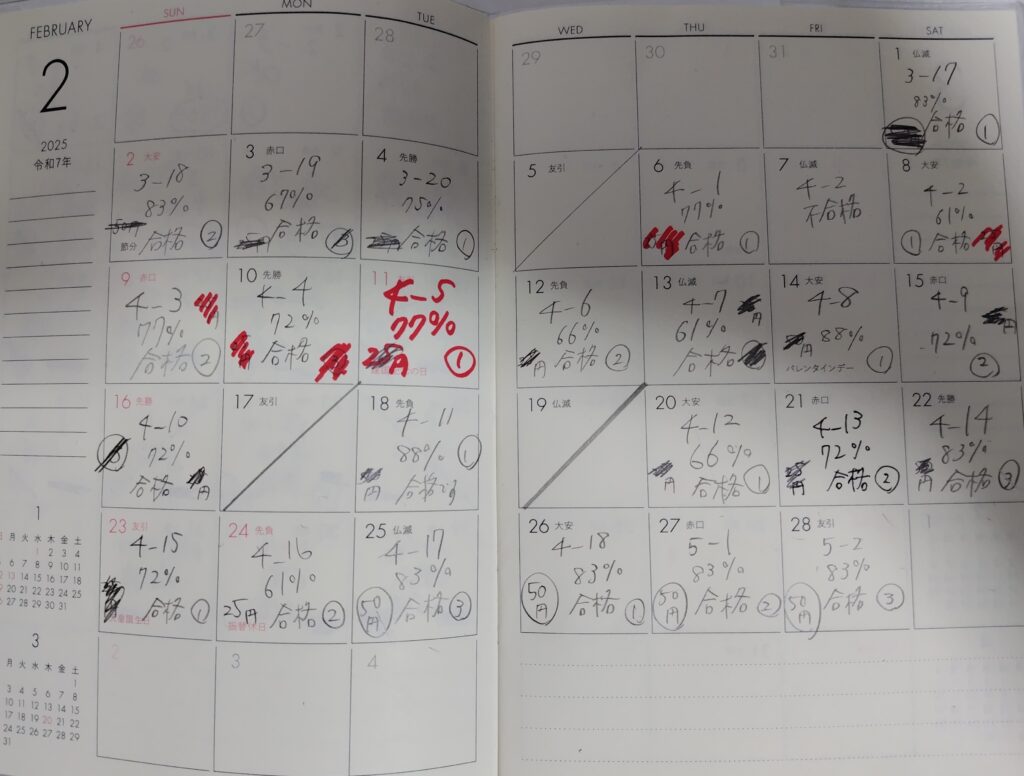 FEBRUARY
2
2025
令和7年
SUN
MON
TUE
WED
THU
FRI
SAT
26
27
28
29
30
31
1 仏滅
3-17
83%
合格 ①
2 大安
3-18
83%
節分 合格 ②
3 赤口
3-19
67%
合格
4 先勝
3-20
75%
合格 ①
5 友引
6 先負
4-1
77%
合格 ①
7 仏滅
4-2
不合格
8 大安
4-2
61%
① 合格
9 赤口
4-3
77%
合格 ②
10 先勝
4-4
72%
合格
11
4-5
77%
円 ①
12 先負
4-6
66%
円 合格 ②
13 仏滅
4-7
円
61%
合格
14 大安
4-8
円 88% ①
バレンタインデー
15 赤口
4-9
円
72%
②
16 先勝
4-10
72%
合格 円
17 友引
18 先負
4-11
88% ①
円 合格です
19 仏滅
20 大安
4-12
66%
円 合格 ①
21 赤口
4-13
72%
円 合格 ②
22 先勝
4-14
83%
円 合格 ③
23 友引
4-15
72%
合格 ①
誕生日
24 先負
4-16
61%
25円 合格 ②
振替休日
25 仏滅
4-17
83%
50円 合格 ③
26 大安
4-18
83%
50円 合格 ①
27 赤口
5-1
83%
50円 合格 ②
28 友引
5-2
83%
50円 合格 ③
1
2
3
4
1
月 火 水 木 金 土
1 2 3 4
6 7 8 9 10 11
13 14 15 16 17 18
20 21 22 23 24 25
27 28 29 30 31
3
月 火 水 木 金 土
1
3 4 5 6 7 8
10 11 12 13 14 15
17 18 19 20 21 22
24 25 26 27 28 29
31